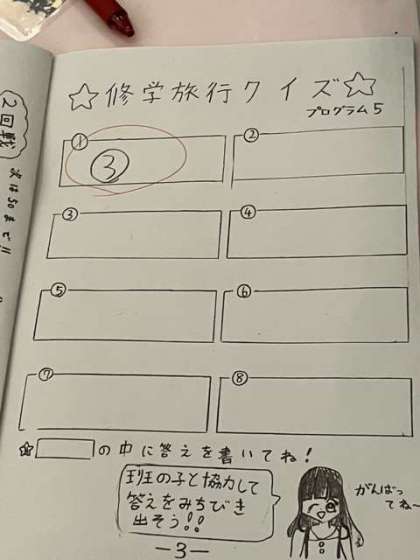 ☆修学旅行クイズ☆
プログラム5
① ②
③
③ ④
⑤ ⑥
⑦ ⑧
☆ の中に答えを書いてね!
班の子と協力して
答えをみちびき
出そう!!
がんばっ
てね〜
ー3ー
2回戦